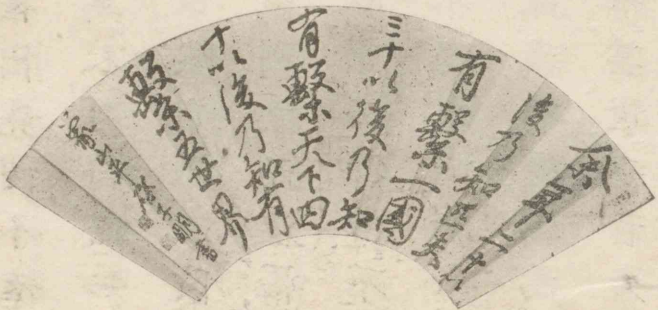 余年二十以
後乃知匹夫
有繫一國
三十以後乃知
有繫天下四
十以後乃知有
繫五世界
象山平啓子明書